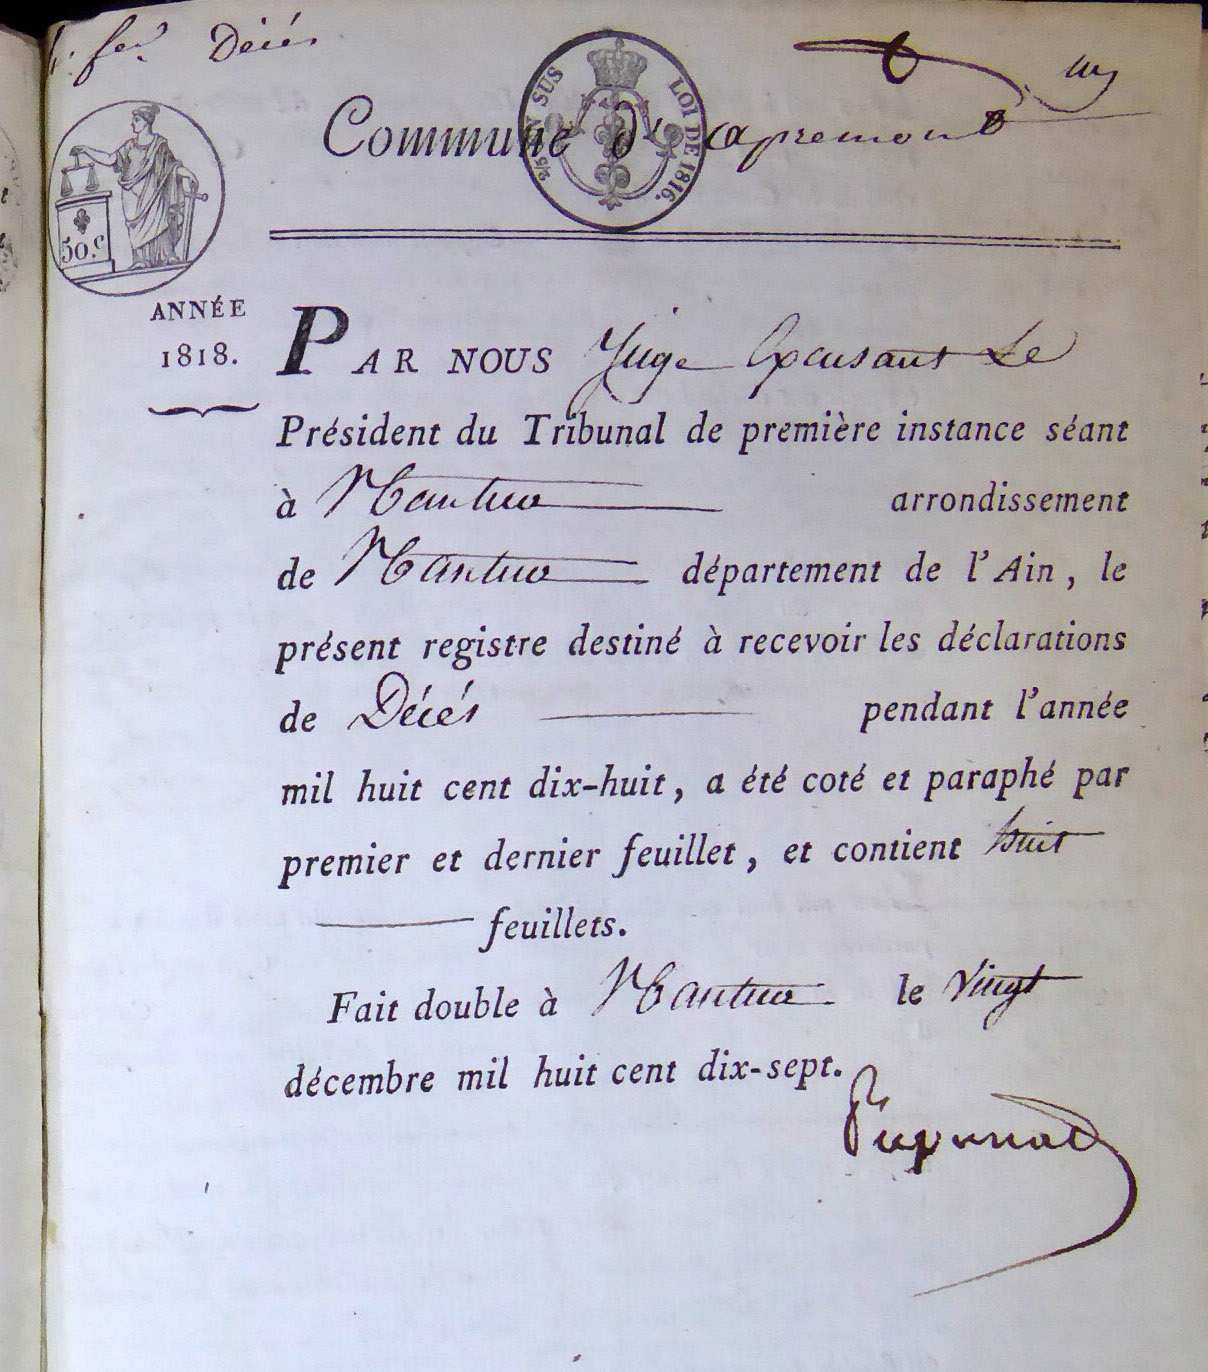 1. fer Décés
EN SUS
LOI DE 1816.
Commune d'apremont
50.C
ANNÉE
1818.
PAR NOUS Juge Excusant Le
Président du Tribunal de première instance séant
à Nantua arrondissement
de Nantua département de l'Ain, le
présent registre destiné à recevoir les déclarations
de Décés pendant l'année
mil huit cent dix-huit, a été coté et paraphé par
premier et dernier feuillet, et contient huit
feuillets.
Fait double à Nantua le Vingt
décembre mil huit cent dix-sept.